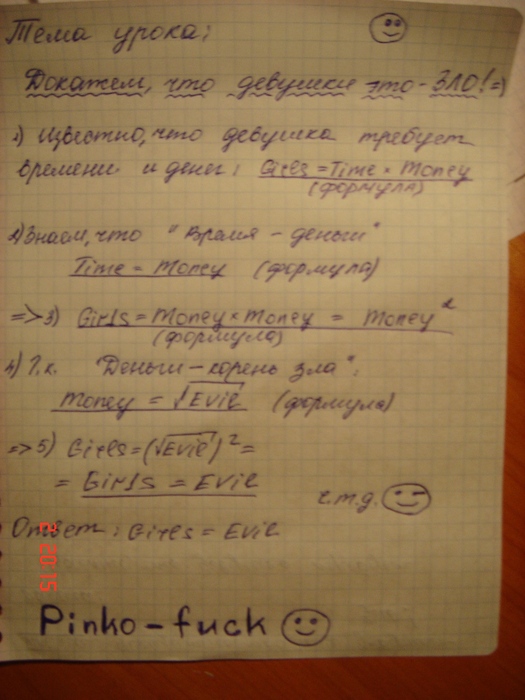 Тема урока:
Докажем, что девушки это - ЗЛО! =)
1) Известно, что девушка требует
времени и денег: Girls = Time × Money
(формула)
2) Знаем, что "Время - деньги"
Time = Money (формула)
=> 3) Girls = Money × Money = Money²
(формула)
4) Т.к. "Деньги - корень зла":
Money = √Evil (формула)
=> 5) Girls = (√Evil)² =
= Girls = Evil
ч.т.д.
Ответ: Girls = Evil
Pinko - fuck